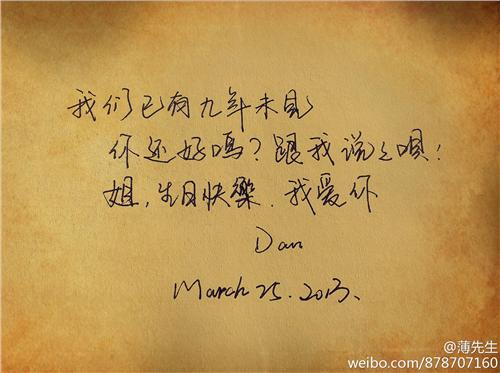 我们已有九年未見
你还好嗎？跟我说说唄！
姐，生日快樂．我爱你
Dan
March 25. 2013.
@薄先生
weibo.com/878707160